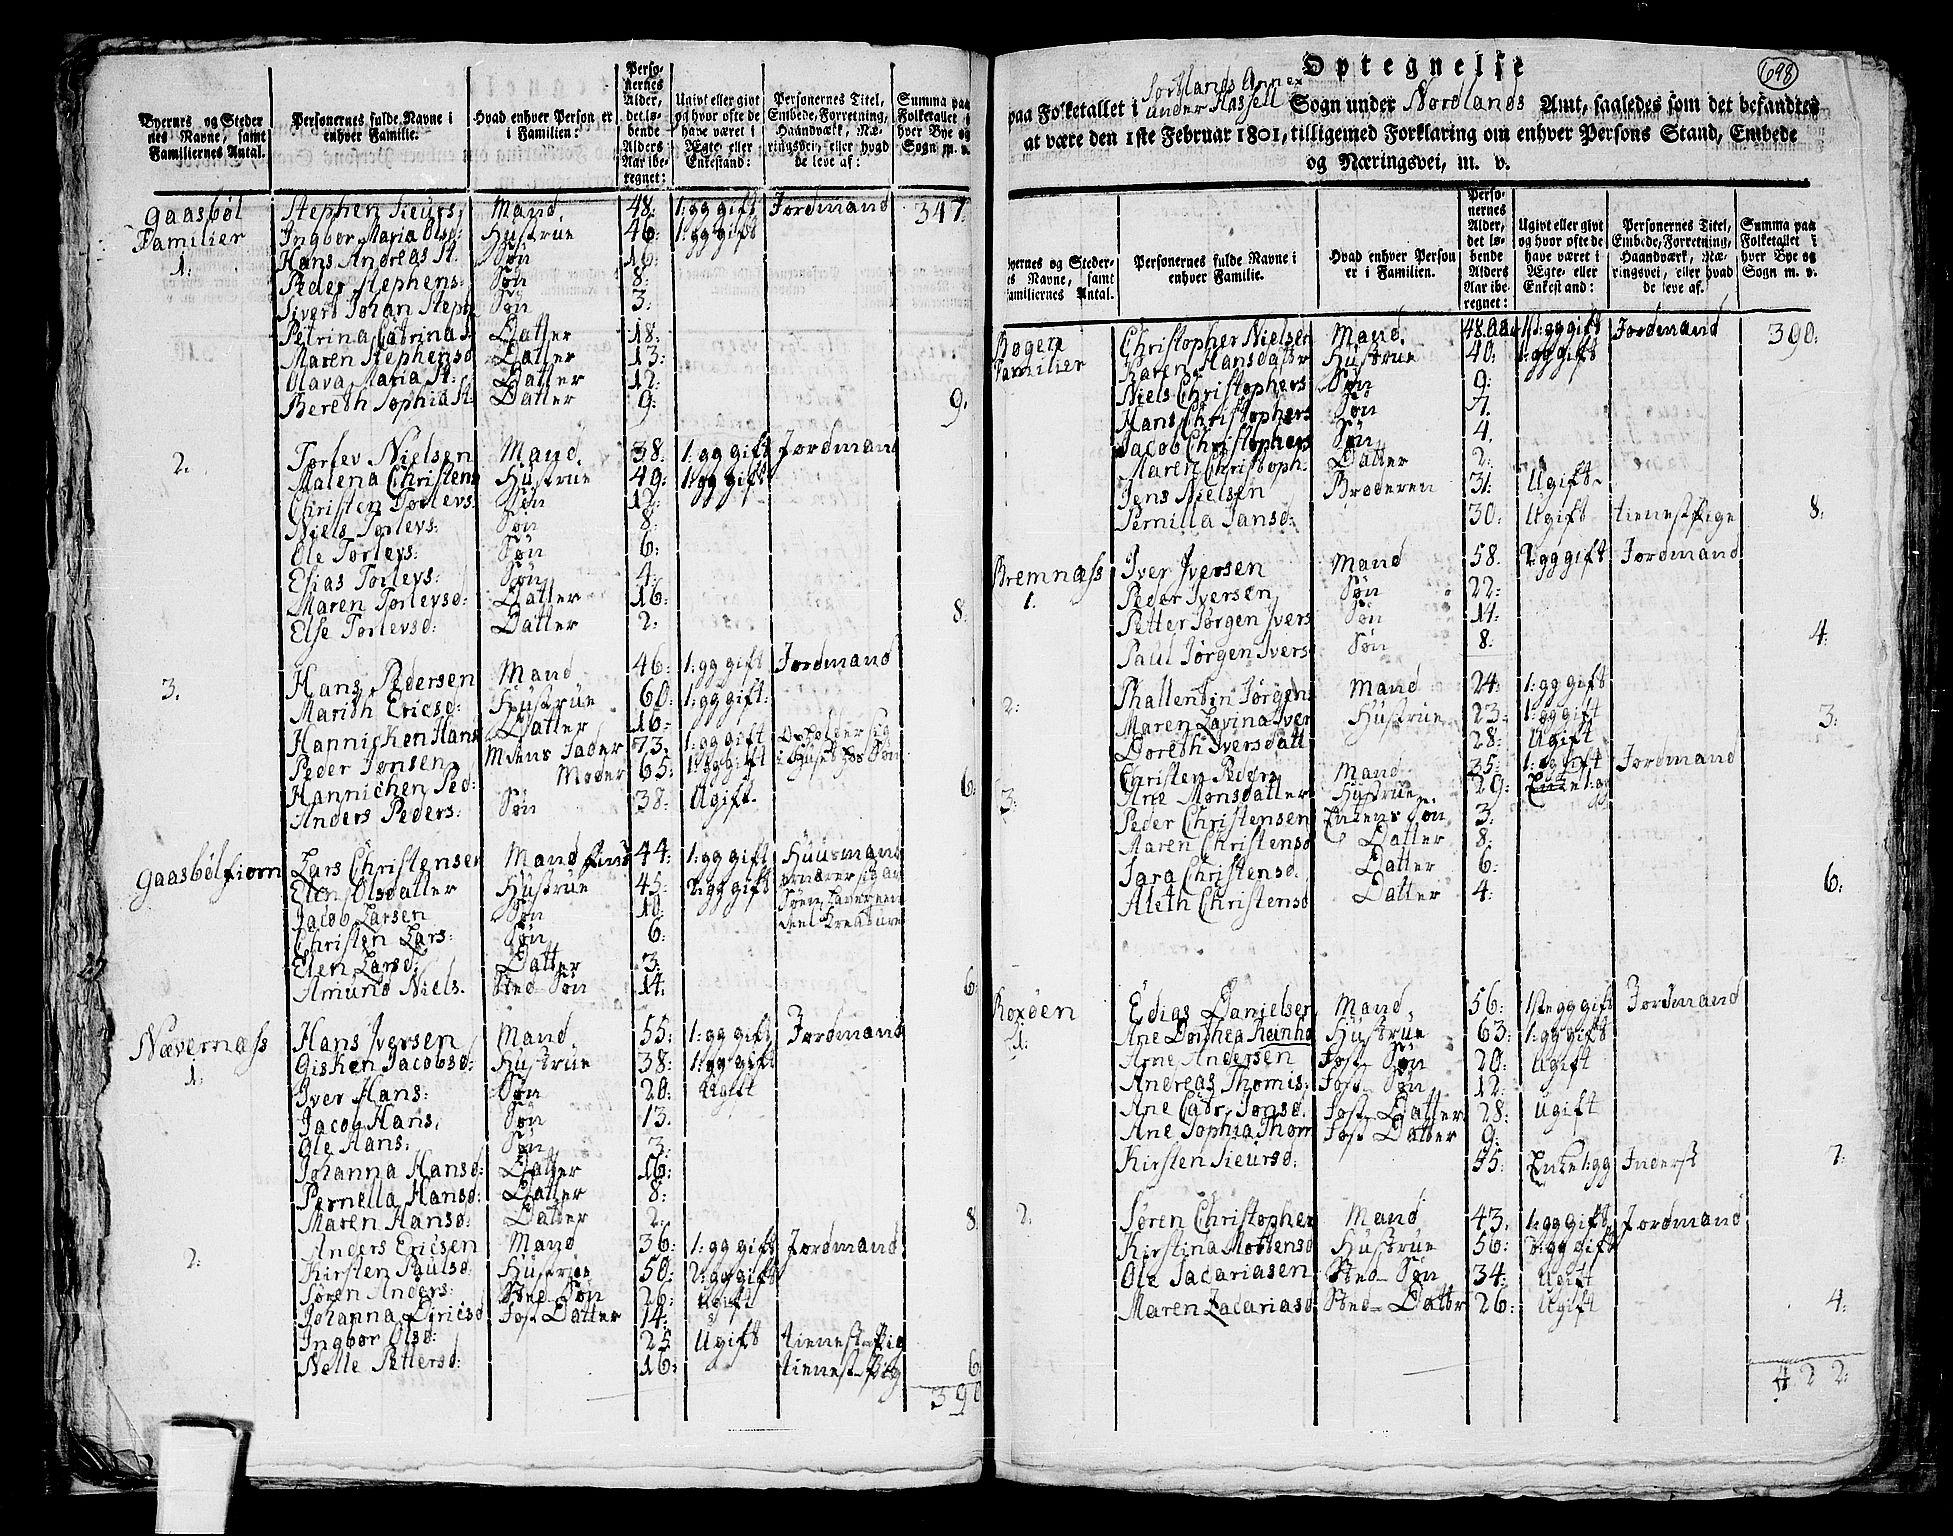 Byernes og Steder
nes Navne, samt
Familiernes Antal.
Personernes fulde Navne i
enhver Familie.
Hvad enhver Person er
i Familien:
Perso-
nernes
Alder,
det lø-
bende
Alders
Aar ibe-
regnet:
Ugivt eller givt
og hvor ofte de
have været i
Ægte- eller
Enkestand:
Personernes Titel,
Embede, Forretning,
Haandværk, Næ-
ringsvei, eller hvad
de leve af:
Summa paa
Folketallet i
hver Bye og
Sogn m. v.
Gaasbøl Stephen Sieurs: Mand 48: 1: gg gift Jordmand 347.
Familier Ingbor Maria Olsd: Hustrue 46: 1: gg gift
1: Hans Andreas St. Søn 16:
Peder Stephens: Søn 8:
Sivert Johan Steph Søn 3:
Petrina Catrina S. Datter 18:
Maren Stephensd Datter 13:
Olava Maria St: Datter 12:
Bereth Sophia St: Datter 9: 9.
2. Torlev Nielsen Mand 38: 1: gg gift Jordmand
Malena Christens Hustrue 49: 1: gg gift
Christen Torlevs: Søn 12:
Niels Torlevs: Søn 8:
Ole Torlevs: Søn 6:
Elias Torlevs: Søn 4:
Maren Torlevsd: Datter 16:
Else Torlevsd: Datter 2: 8:
3. Hans Pedersen Mand 46: 1: gg gift Jordmand
Marith Ericsd: Hustrue 60: 1: gg gift:
Hannichen Hans Datter 16:
Peder Jonsen Mdens Fader 73: 1: gg gift Opholder sig
Hannichen Ped: Moder 65: 1: gg gift i Huset hos Søn
Anders Peders: Søn 38: Ugift. 6:
Gaasbølfiorn Lars Christensen Mand 44: 1: gg gift Huusmand
Elen Olsdatter Hustrue 45: 2: gg gift ernærer sig av
Jacob Larsen Søn 10: Søen
Christen Lars: Søn 6: deel Kreature
Elen Larsd: Datter 3:
Amund Niels. Sted-Søn 14: 6:
Nævernæss Hans Iversen Mand 55: 1: gg gift Jordmand
1: Gisken Jacobsd: Hustrue 38: 1: gg gift
Iver Hans: Søn 20: Ugift
Jacob Hans: Søn 13:
Ole Hans: Søn 3:
Johanna Hansd: Datter 16:
Pernella Hansd: Datter 8:
Maren Hansd: Datter 2: 8.
2. Anders Ericsen Mand 36: 1: gg gift Jordmand
Kirsten Paulsd Hustrue 50: 2: gg gift
Søren Anders: Sted-Søn 26: Ugift
Johanna Ericsd Fost Datter 14:
Ingbor Olsd: 25 Ugift tienestePig
Nelle Pettersd: 16: tienest Pig 6
390
Optegnelse
698
paa Folketallet i Sortlands Annex under Hassell Sogn under Nordlands Amt, saaledes som det befandtes
at være den 1ste Februar 1801, tilligemed Forklaring om enhver Persons Stand, Embede
og Næringsvei, m. v.
Byernes og Steder-
nes Navne, samt
Familiernes Antal.
Personernes fulde Navne i
enhver Familie.
Hvad enhver Person
er i Familien.
Perso-
nernes
Alder,
det lø-
bende
Alders
Aar ibe-
regnet:
Ugivt eller givt
og hvor ofte de
have været i
Ægte- eller
Enkestand:
Personernes Titel,
Embede, Forretning,
Haandværk, Næ-
ringsvei, eller hvad
de leve af.
Summa paa
Folketallet i
hver Bye og
Sogn m. v.
Bogen Christopher Nielsen Mand 48 aar 1: gg gift Jordmand 390:
Familier Karen Hansdatter Hustrue 40: 1: gg gift
Niels Christophers Søn 9:
Hans Christophers Søn 7.
Jacob Christophers Søn 4.
Maren Christoph: Datter 2:
Jens Nielsen Broderen 31: Ugift.
Pernilla Jansd: 30: Ugift tienestpige 8:
Bremnæss Iver Iversen Mand 58. 2: gg gift Jordmand
1. Peder Iversen Søn 22:
Petter Jørgen Ivers Søn 14:
Paul Jørgen Ivers Søn 8. 4:
2: Phallentin Jørgen Mand 24: 1: gg gift
Maren Lavina Iver Hustrue 23: 1: gg gift
Doreth Iversdatt 28: Ugift 3:
3: Christen Peders Mand 35: 1: gg gift Jordmand
Ane Monsdatter Hustrue 29:
Peder Christensen Søn 3:
Maren Christensd Datter 8:
Sara Christensd. Datter 6:
Aleth Christensd Datter 4: 6:
Roxøen Edias Danielsen Mand 56: 1ste gg gift Jordmand
1: Ane Dorthea Reinho Hustrue 63: 1: gg gift
Arne Andersen Fost Søn 20: Ugift
Andreas Thomis: Fost Søn 12:
Ane Catr. Jonsd. Fost Datter 28: Ugift
Ane Sophia Thom Fost Datter 9:
Kirsten Sieursd: 55: Enke 1: gg Inderst 7:
2. Søren Christopher Mand 43: 1: gg gift Jordmand
Kirstina Mortensd Hustrue 56: 2: gg gift
Ole Sacariasen Sted-Søn 34: Ugift
Maren Zacariasd Sted-Datter 26: Ugift 4:
422: